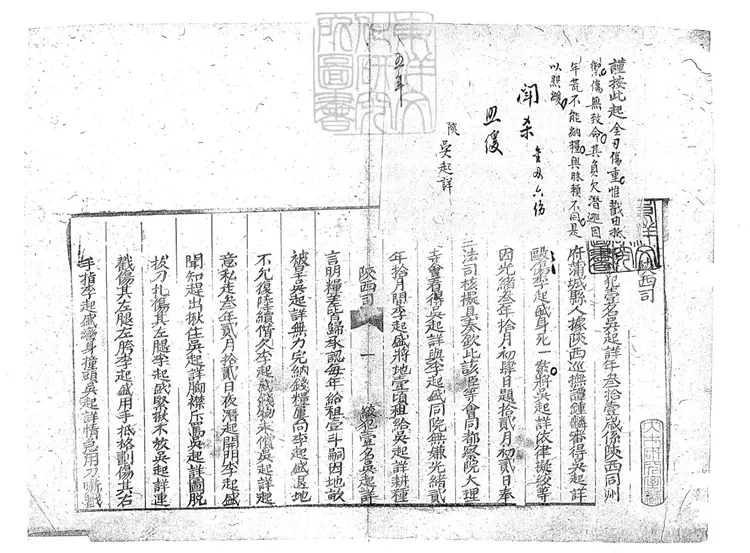 謹按此起金刃傷重惟戳由抵
禦傷無致命其負欠潛逃因
年荒不能納糧與昧賴不同是
以照緩
鬥殺 金刃六傷
照緩
陝 吳起詳
五年
東洋文化研究所圖書
陝西司
犯壹名吳起詳年叁拾壹歲係陝西同州
府蒲城縣人據陝西巡撫譚鍾麟審得吳起詳
毆傷李起盛身死一案將吳起詳依律擬絞等
因光緒叁年拾月初肆日題拾貳月初貳日奉
三法司核擬具奏欽此該臣等會同都察院大理
寺會看得吳起詳與李起盛同院無嫌光緒貳
年拾月間李起盛將地壹頃租給吳起詳耕種
陝西司 一 絞犯壹名吳起詳
言明糧差皆歸承認每年給租壹斗嗣因地畝
被旱吳起詳無力完納錢糧屢向李起盛退地
不允復陸續借欠李起盛錢物未償吳起詳起
意私走叁年貳月拾貳日夜潛起開門李起盛
聞知趕出揪住吳起詳胸襟吳起詳圖脫
拔刀扎傷其左腿李起盛緊揪不放吳起詳連
戳傷其左腿左胯李起盛用手抵格劃傷其右
手指李起盛彎身撞頭吳起詳情急用刀嚇戳